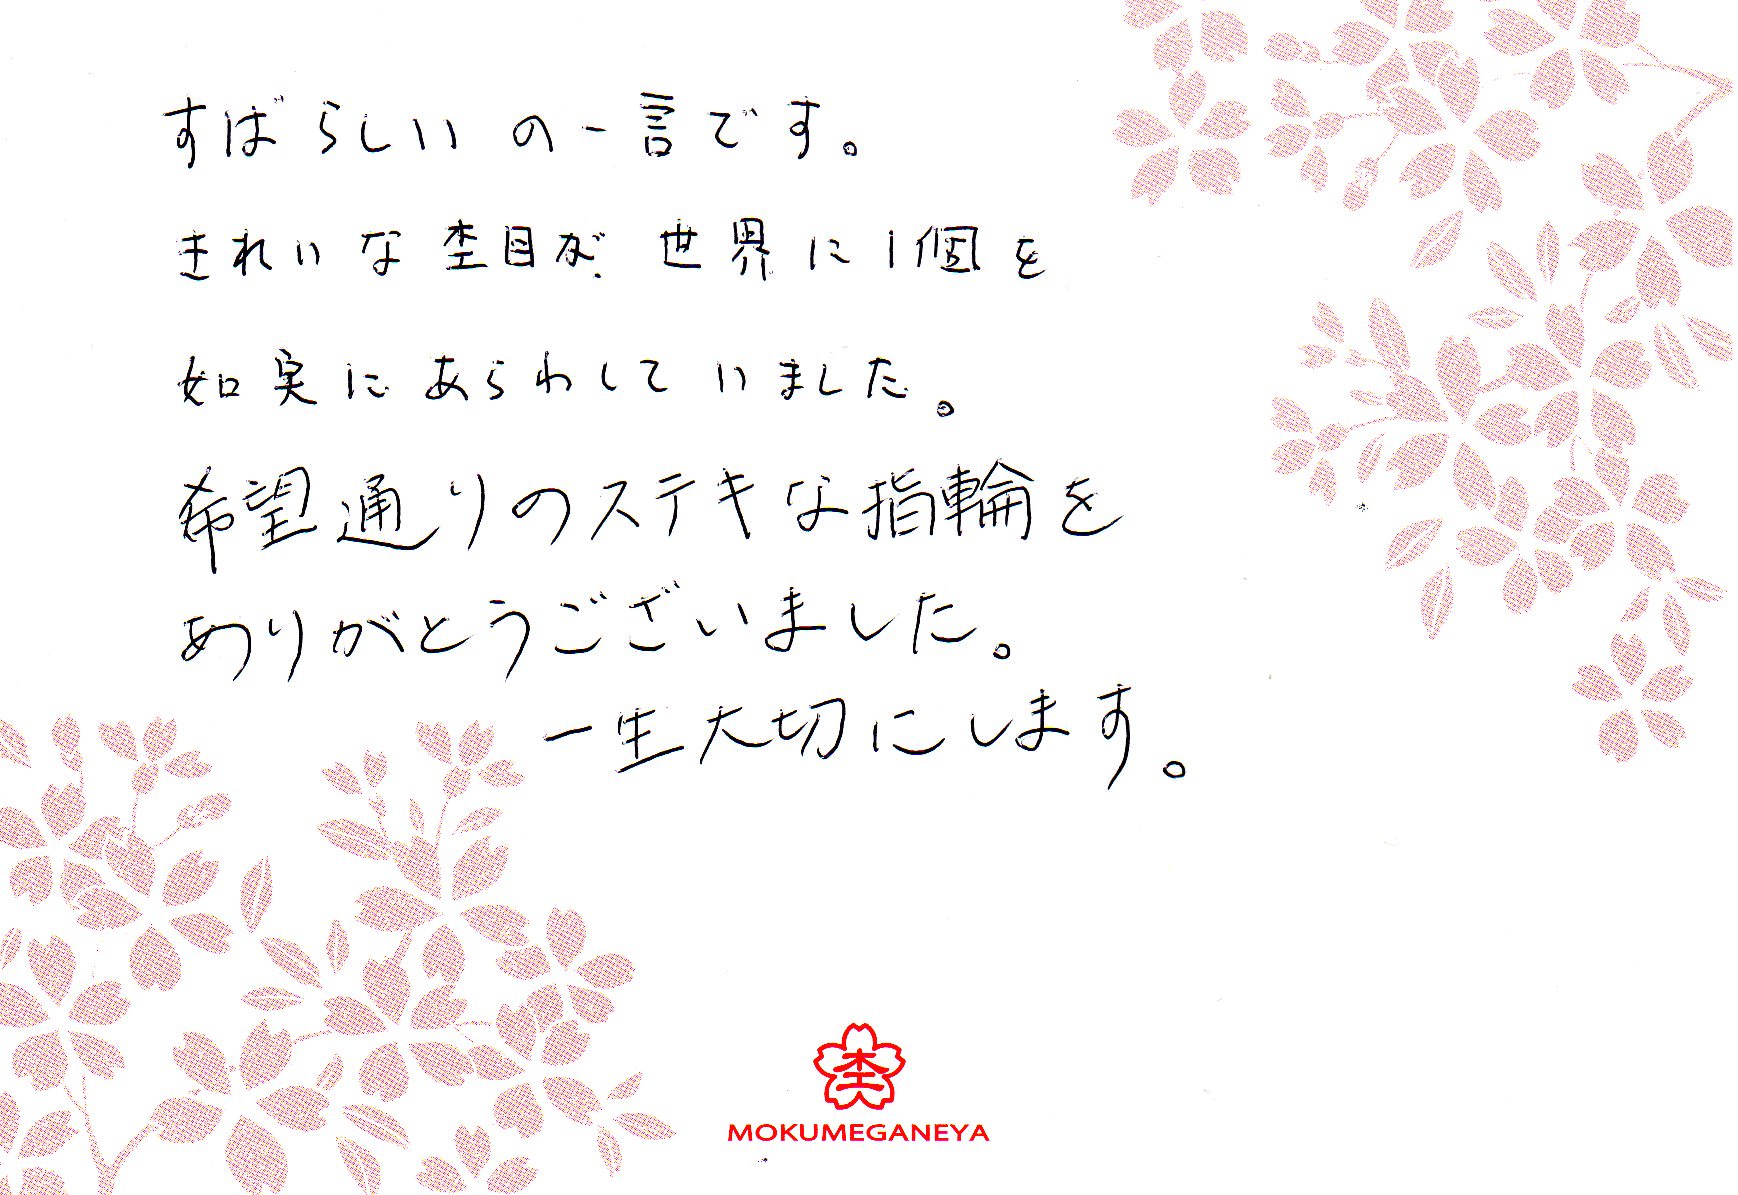 すばらしいの一言です。
きれいな杢目が、世界に1個を
如実にあらわしていました。
希望通りのステキな指輪を
ありがとうございました。
一生大切にします。
杢
MOKUMEGANEYA